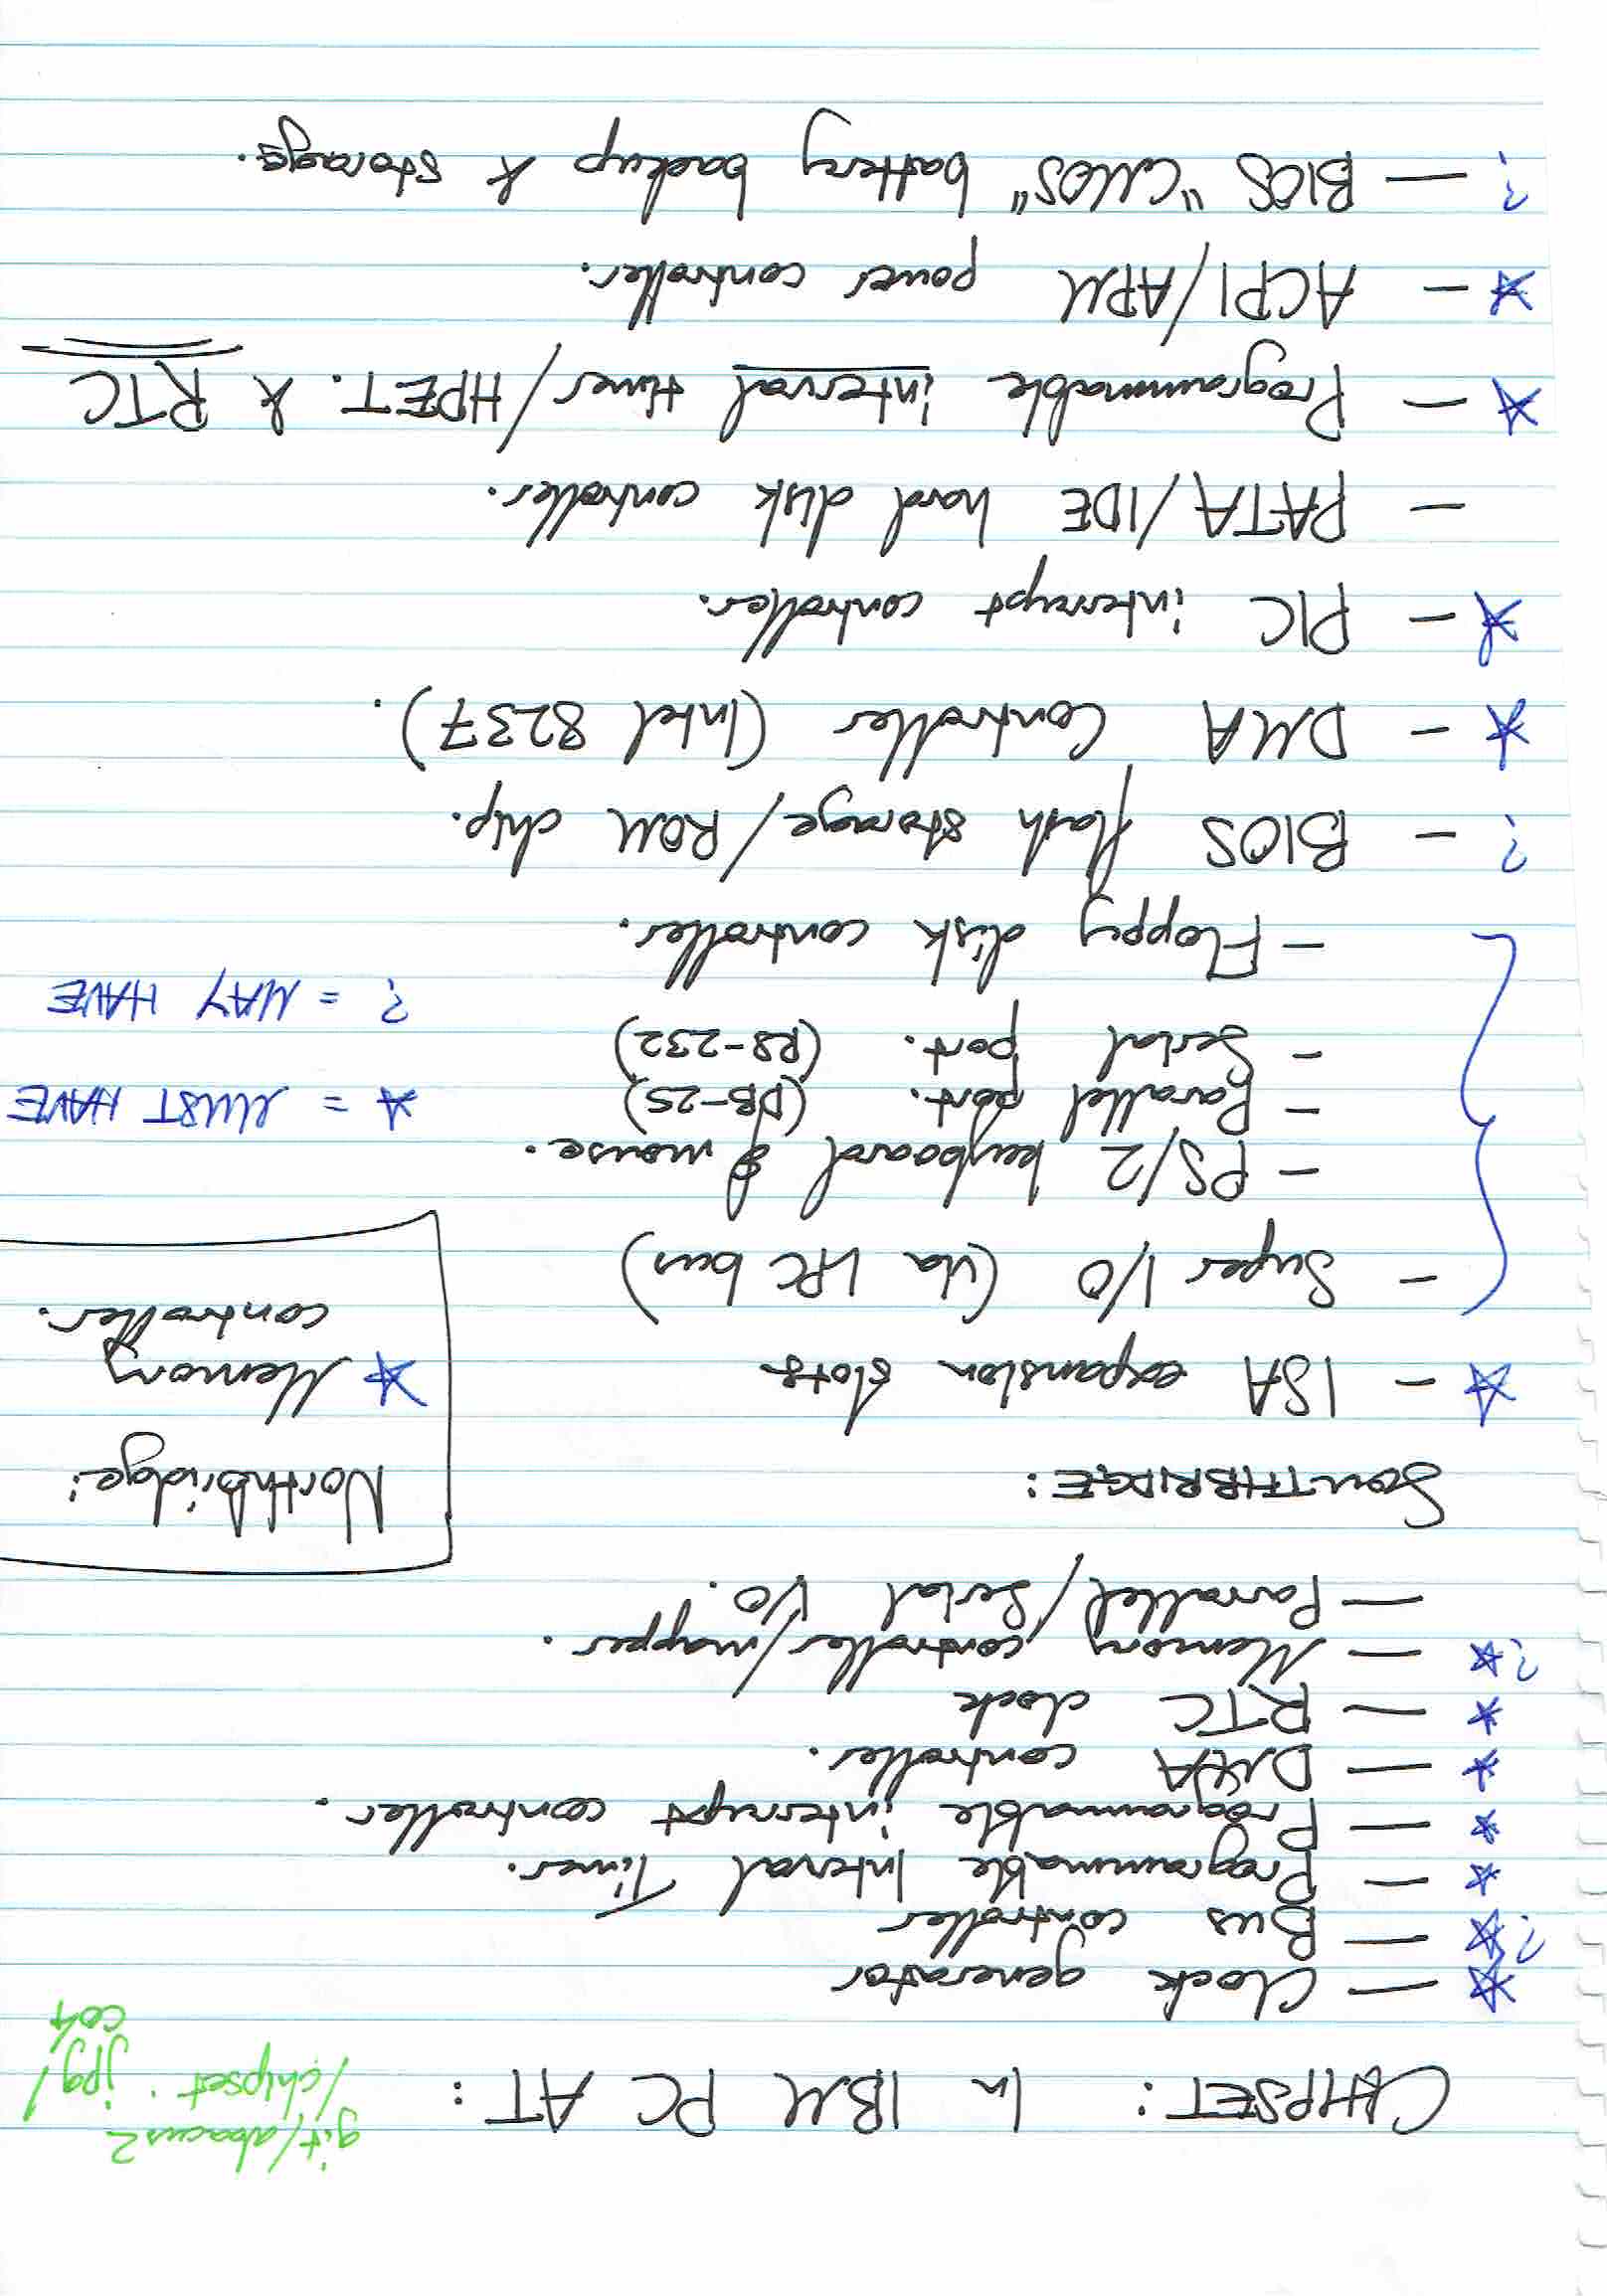 git/abacus2
/chipset.jpg/
co4
CHIPSET: In IBM PC AT:
☆ — Clock generator
?☆ — Bus controller
☆ — Programmable Interval Timer.
☆ — Programmable interrupt controller.
☆ — DMA controller.
☆ — RTC clock
?☆ — Memory controller/mapper.
— Parrallel/Serial I/O.
SOUTHBRIDGE:
☆ - ISA expansion slots
- Super I/O (via LPC bus)
- PS/2 keyboard & mouse.
- Parallel port. (DB-25)
- Serial port. (RS-232)
- Floppy disk controller.
? - BIOS flash storage/ROM chip.
☆ - DMA Controller (Intel 8237).
☆ - PIC interrupt controller.
- PATA/IDE hard disk controller.
☆ — Programmable interval timer/HPET. & RTC
☆ - ACPI/APM power controller.
? — BIOS "CMOS" battery backup & storage.
Northbridge:
☆ Memory
controller.
☆ = MUST HAVE
? = MAY HAVE